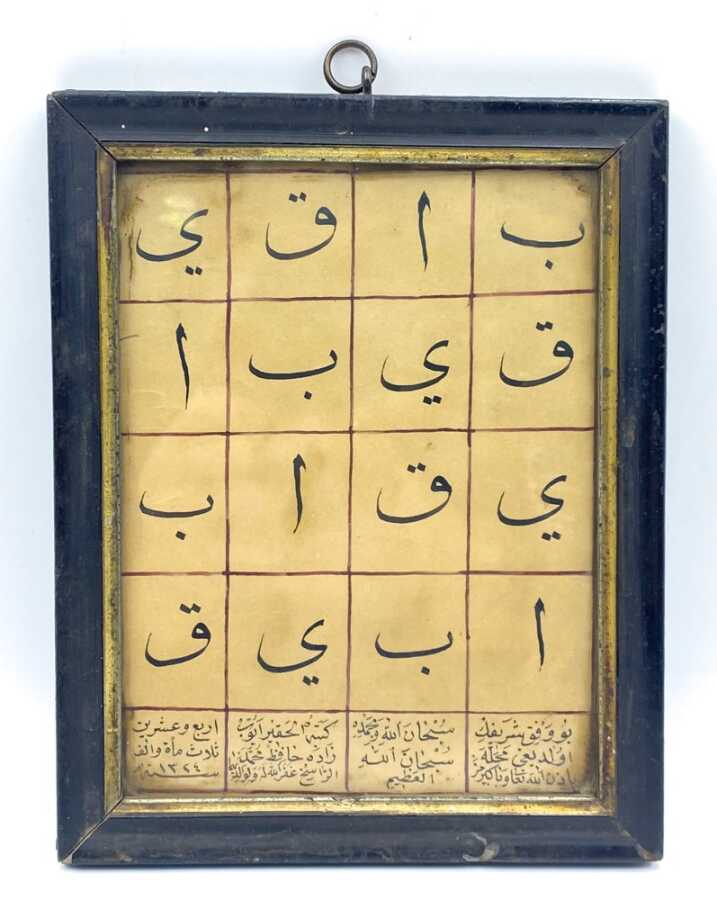 ب ا ق ي
ق ي ب ا
ي ق ا ب
ا ب ي ق
بو وفق شريفك
اولديغى محله
باذن الله تعالى وبا كيرمز
سبحان الله وبحمده
سبحان الله
العظيم
كتبه الحقير ايوب
زاده حافظ محمد
الناسخ غفر الله له ولوالديه
اربع وعشرين
ثلاث ماة والف
سنه ١٣٢٤